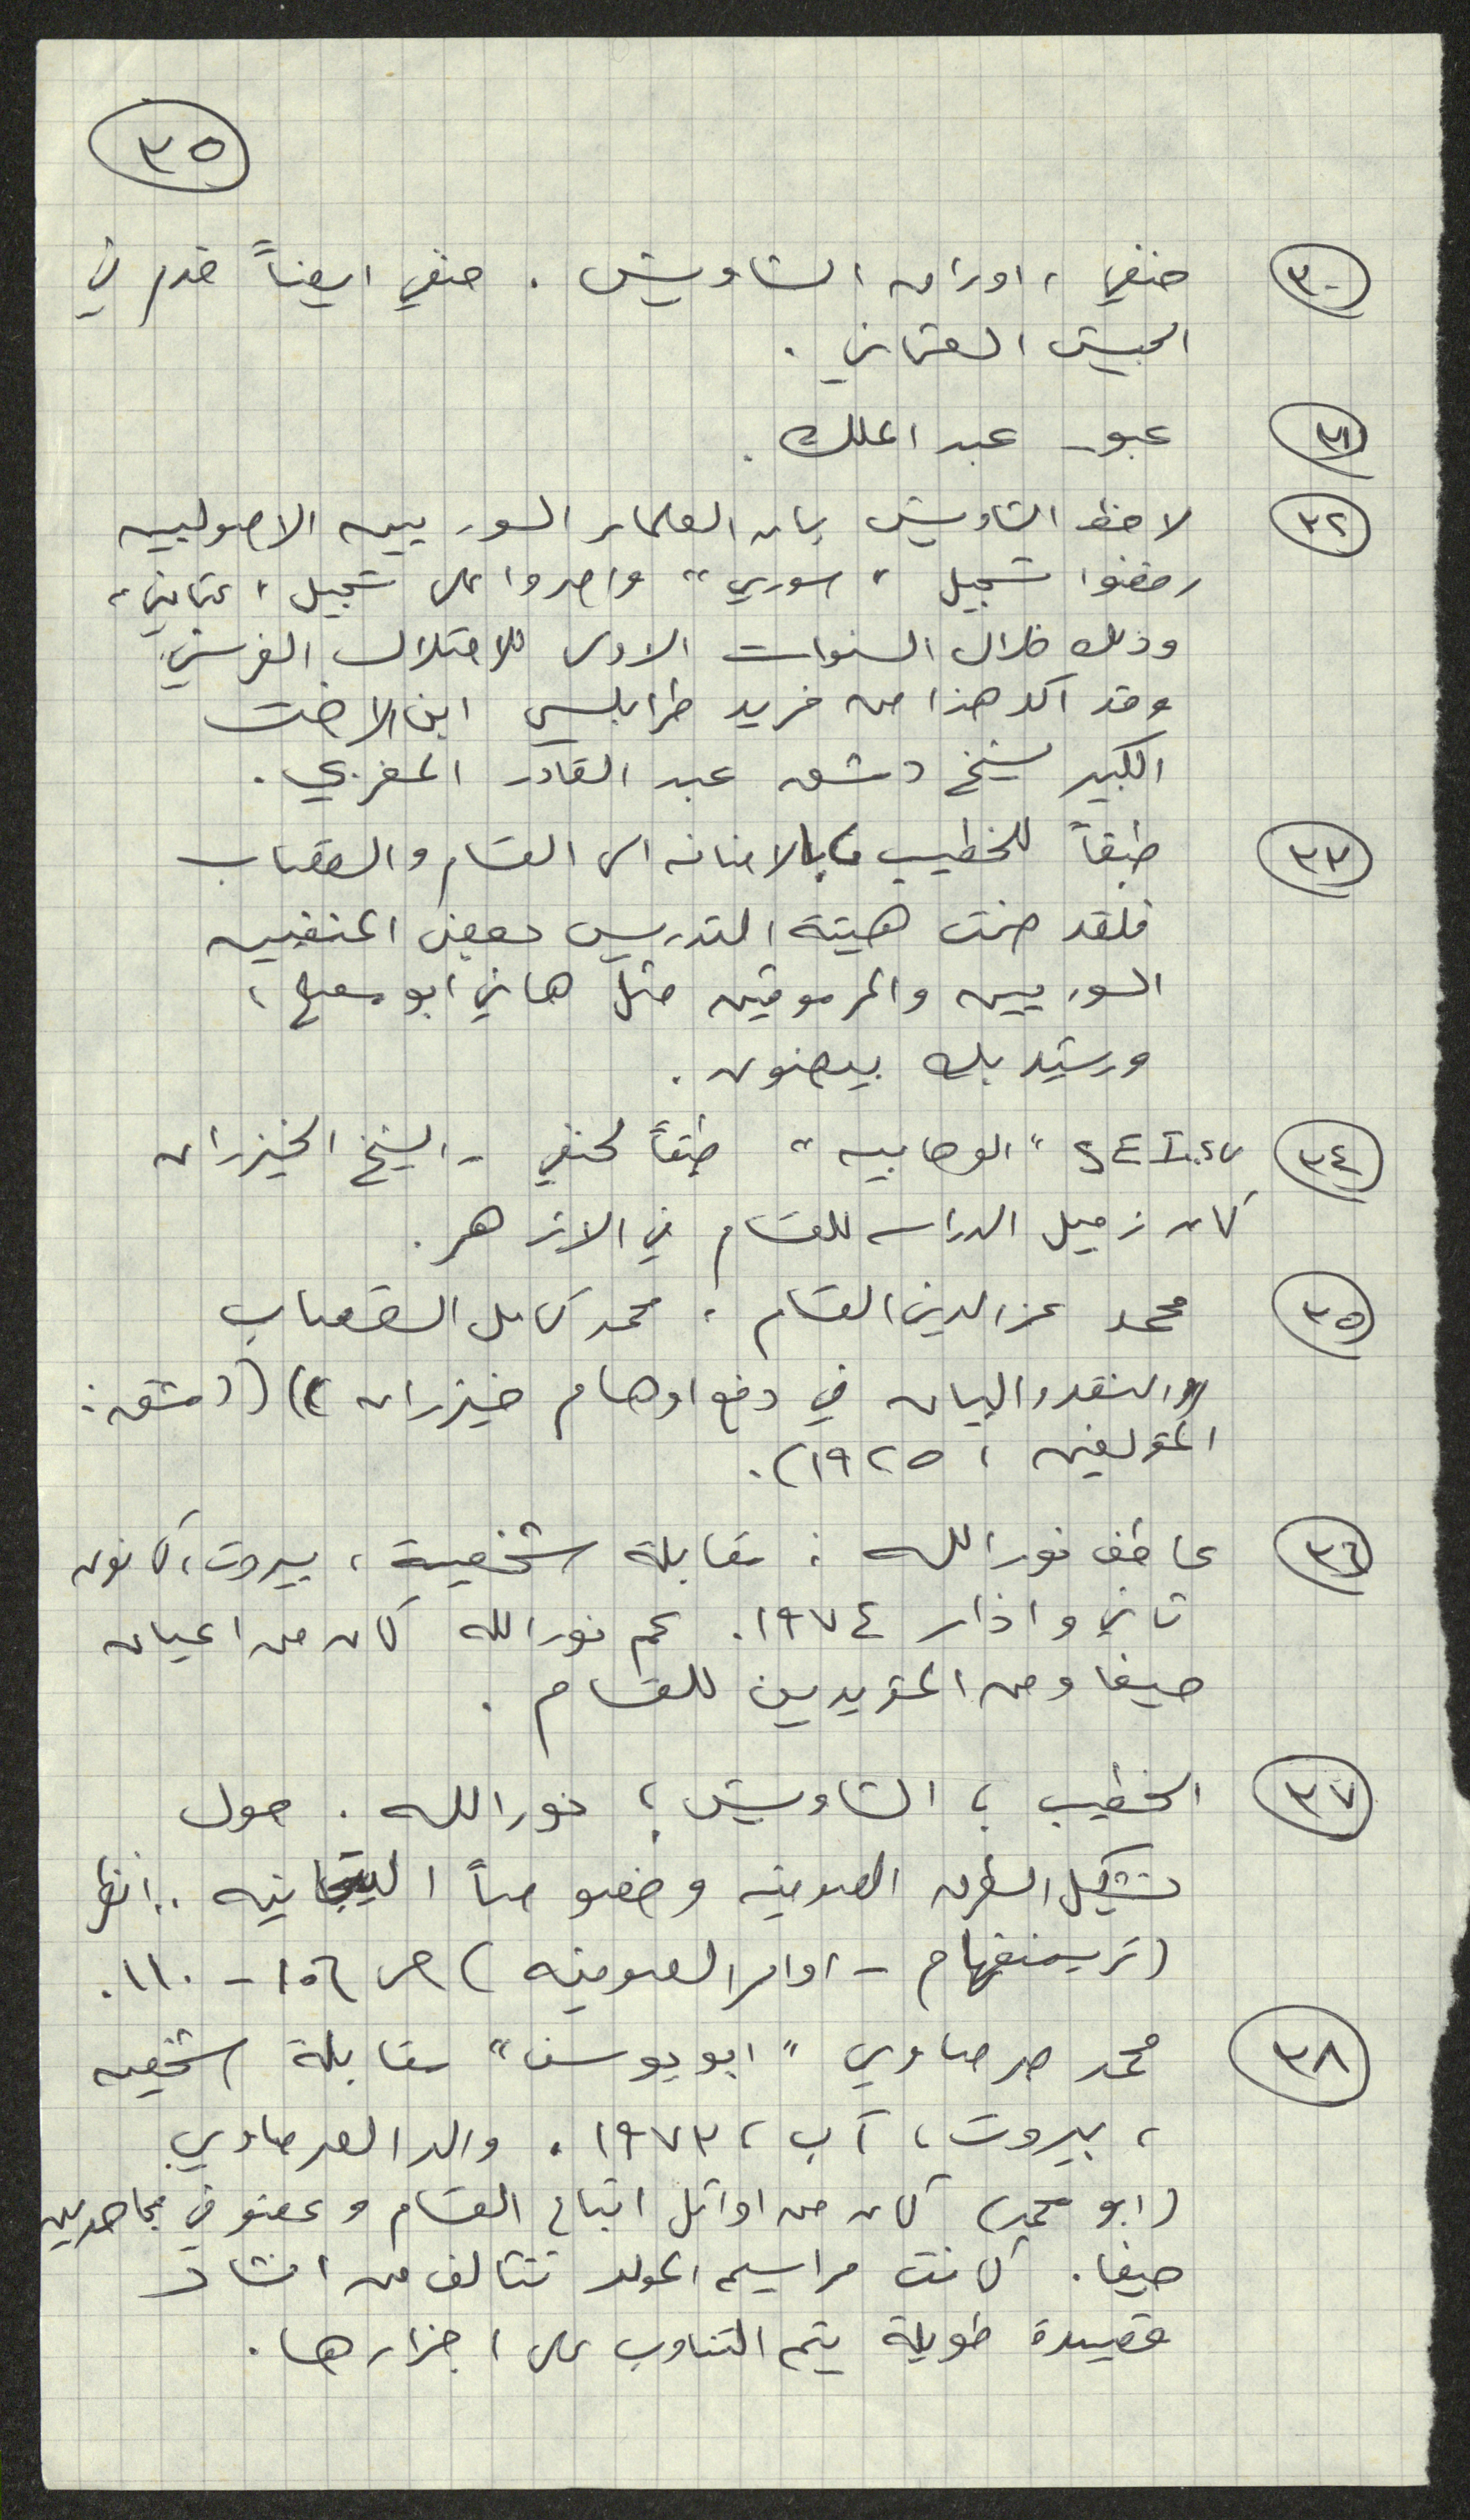 ٣٥
٣٠ حنفي ، اوراق الشاويش . حنفي ايضاً خدم في
الجيش العثماني .
٣١ عبوـ عبد الملك .
٣٢ لاحظ الشاويش بان العلماء السوريين الاصوليين
رفضوا تسجيل " سوري " واصروا على تسجيل " عثماني "
وذلك خلال السنوات الاولى للاحتلال الفرنسي
وقد اكد هذا من فريد طرابلسي ابن الاخت
الكبير لشيخ دمشق عبد القادر المغربي .
٣٣ طبقاً للخطيب فبالاضافة الى القسام والقصاب
فلقد ضمت هيئة التدريس بعض المنفيين
السوريين والمرموقين مثل هاني ابو مصلح ،
ورشيد بك بيضون .
٣٤ "الوهابيه" طبقاً لحنفي - الشيخ الخيزران
كان زميل الدراسه للقسام في الازهر .
٣٥ محمد عز الدين القسام . محمد كامل القصاب
((النقد والبيان في دفع اوهام خيزران)) (دمشق :
المؤلفين ، ١٩٢٥) .
٣٦ عاطف نور الله : مقابلة شخصية ، بيروت ، كانون
ثاني واذار ١٩٧٤ . عم نور الله كان من اعيان
حيفا ومن المؤيدين للقسام .
٣٧ الخطيب ؛ الشاويش ؛ نور الله . حول
تشكيل الطرق الصوفيه وخصوصاً التيجانيه .. انظر
(تريمنغهام - اوامر الصوفيه) ص ١٠٦ - ١١٠ .
٣٨ محمد صرصاوي " ابو يوسف " مقابلة شخصيه
، بيروت ، آب ، ١٩٧٣ . والد الصرصاوي
(ابو محمد) كان من اوائل اتباع القسام وعضو في مجاهدين
حيفا . كانت مراسيم المولد تتالف من انشاد
قصيدة طويلة يتم التناوب على اجزاءها .